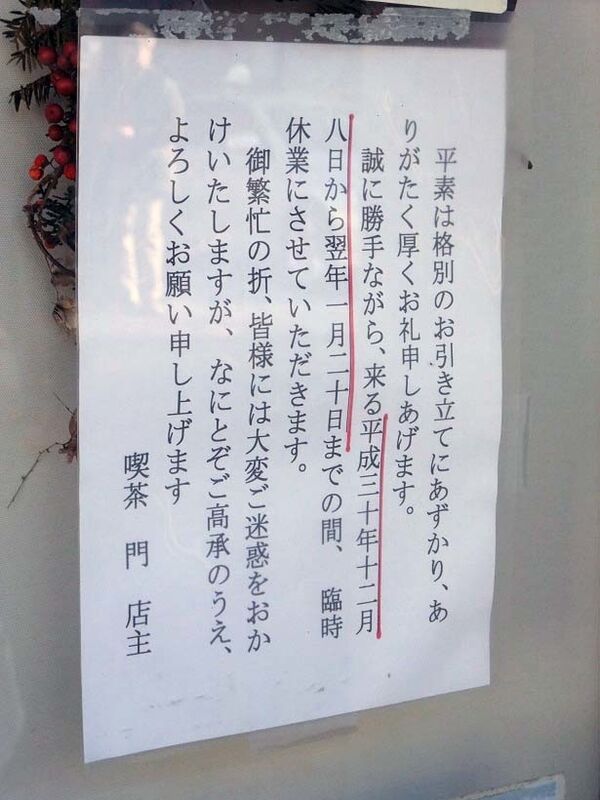 平素は格別のお引き立てにあずかり、あ
りがたく厚くお礼申しあげます。
誠に勝手ながら、来る平成三十年十二月
八日から翌年一月二十日までの間、臨時
休業にさせていただきます。
御繁忙の折、皆様には大変ご迷惑をおか
けいたしますが、なにとぞご高承のうえ、
よろしくお願い申し上げます
喫茶 門 店主